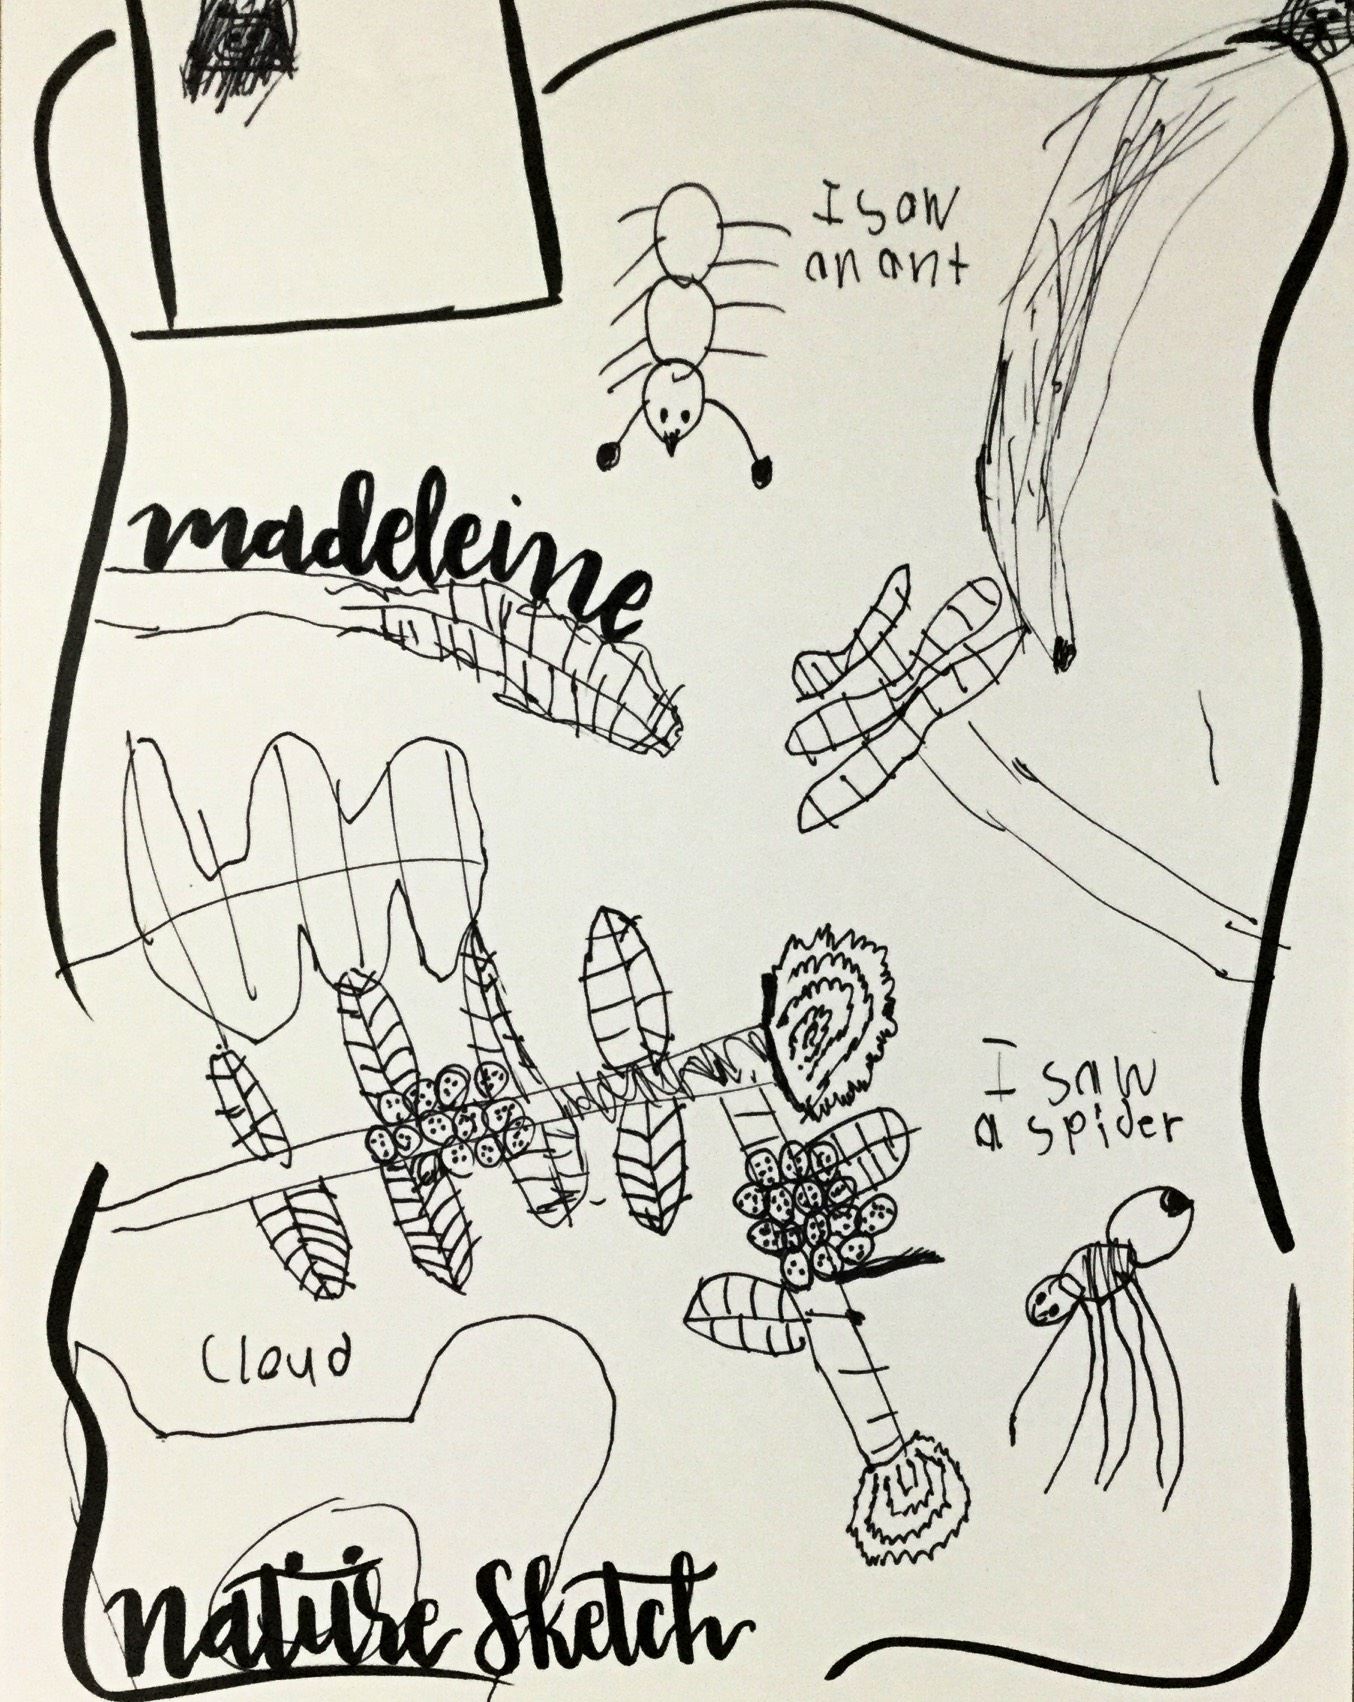 I saw
an ant
madeleine
I saw
a spider
Cloud
nature Sketch